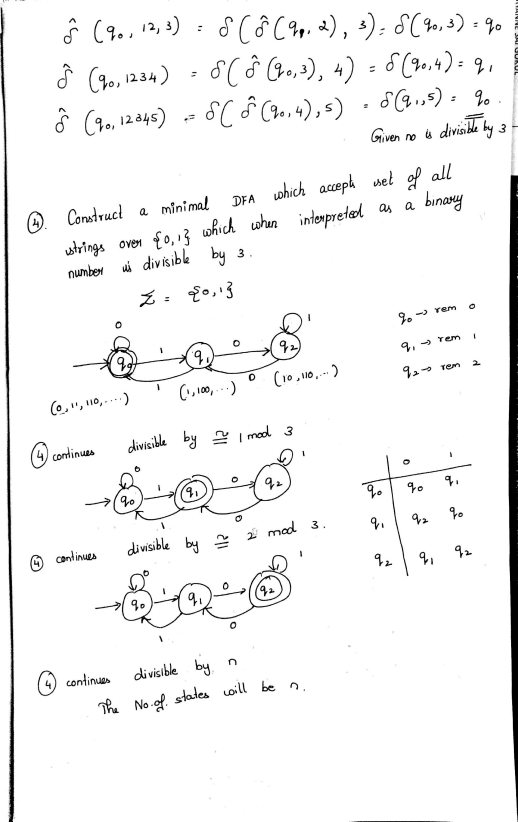 δ̂ (q₀, 12,3) = δ(δ̂(q₀, 2), 3) = δ(q₀,3) = q₀
δ̂ (q₀, 1234) = δ(δ̂(q₀,3), 4) = δ(q₀,4) = q₁
δ̂ (q₀, 12345) = δ(δ̂(q₀,4),5) = δ(q₁,5) = q₀.
Given no is divisible by 3
④. Construct a minimal DFA which accepts set of all
strings over {0,1} which when interpreted as a binary
number is divisible by 3.
Σ = {0,1}
0 1
q₀ 1 q₁ 0 q₂
1 0
(0,11,110,....) (1,100,...) (10,110,...)
q₀ → rem 0
q₁ → rem 1
q₂ → rem 2
④ continues divisible by ≅ 1 mod 3
0 1
q₀ 1 q₁ 0 q₂
1 0
0 1
q₀ q₀ q₁
q₁ q₂ q₀
q₂ q₁ q₂
④ continues divisible by ≅ 2 mod 3.
0 1
q₀ 1 q₁ 0 q₂
1 0
④ continues divisible by n
The No.of. states will be n.